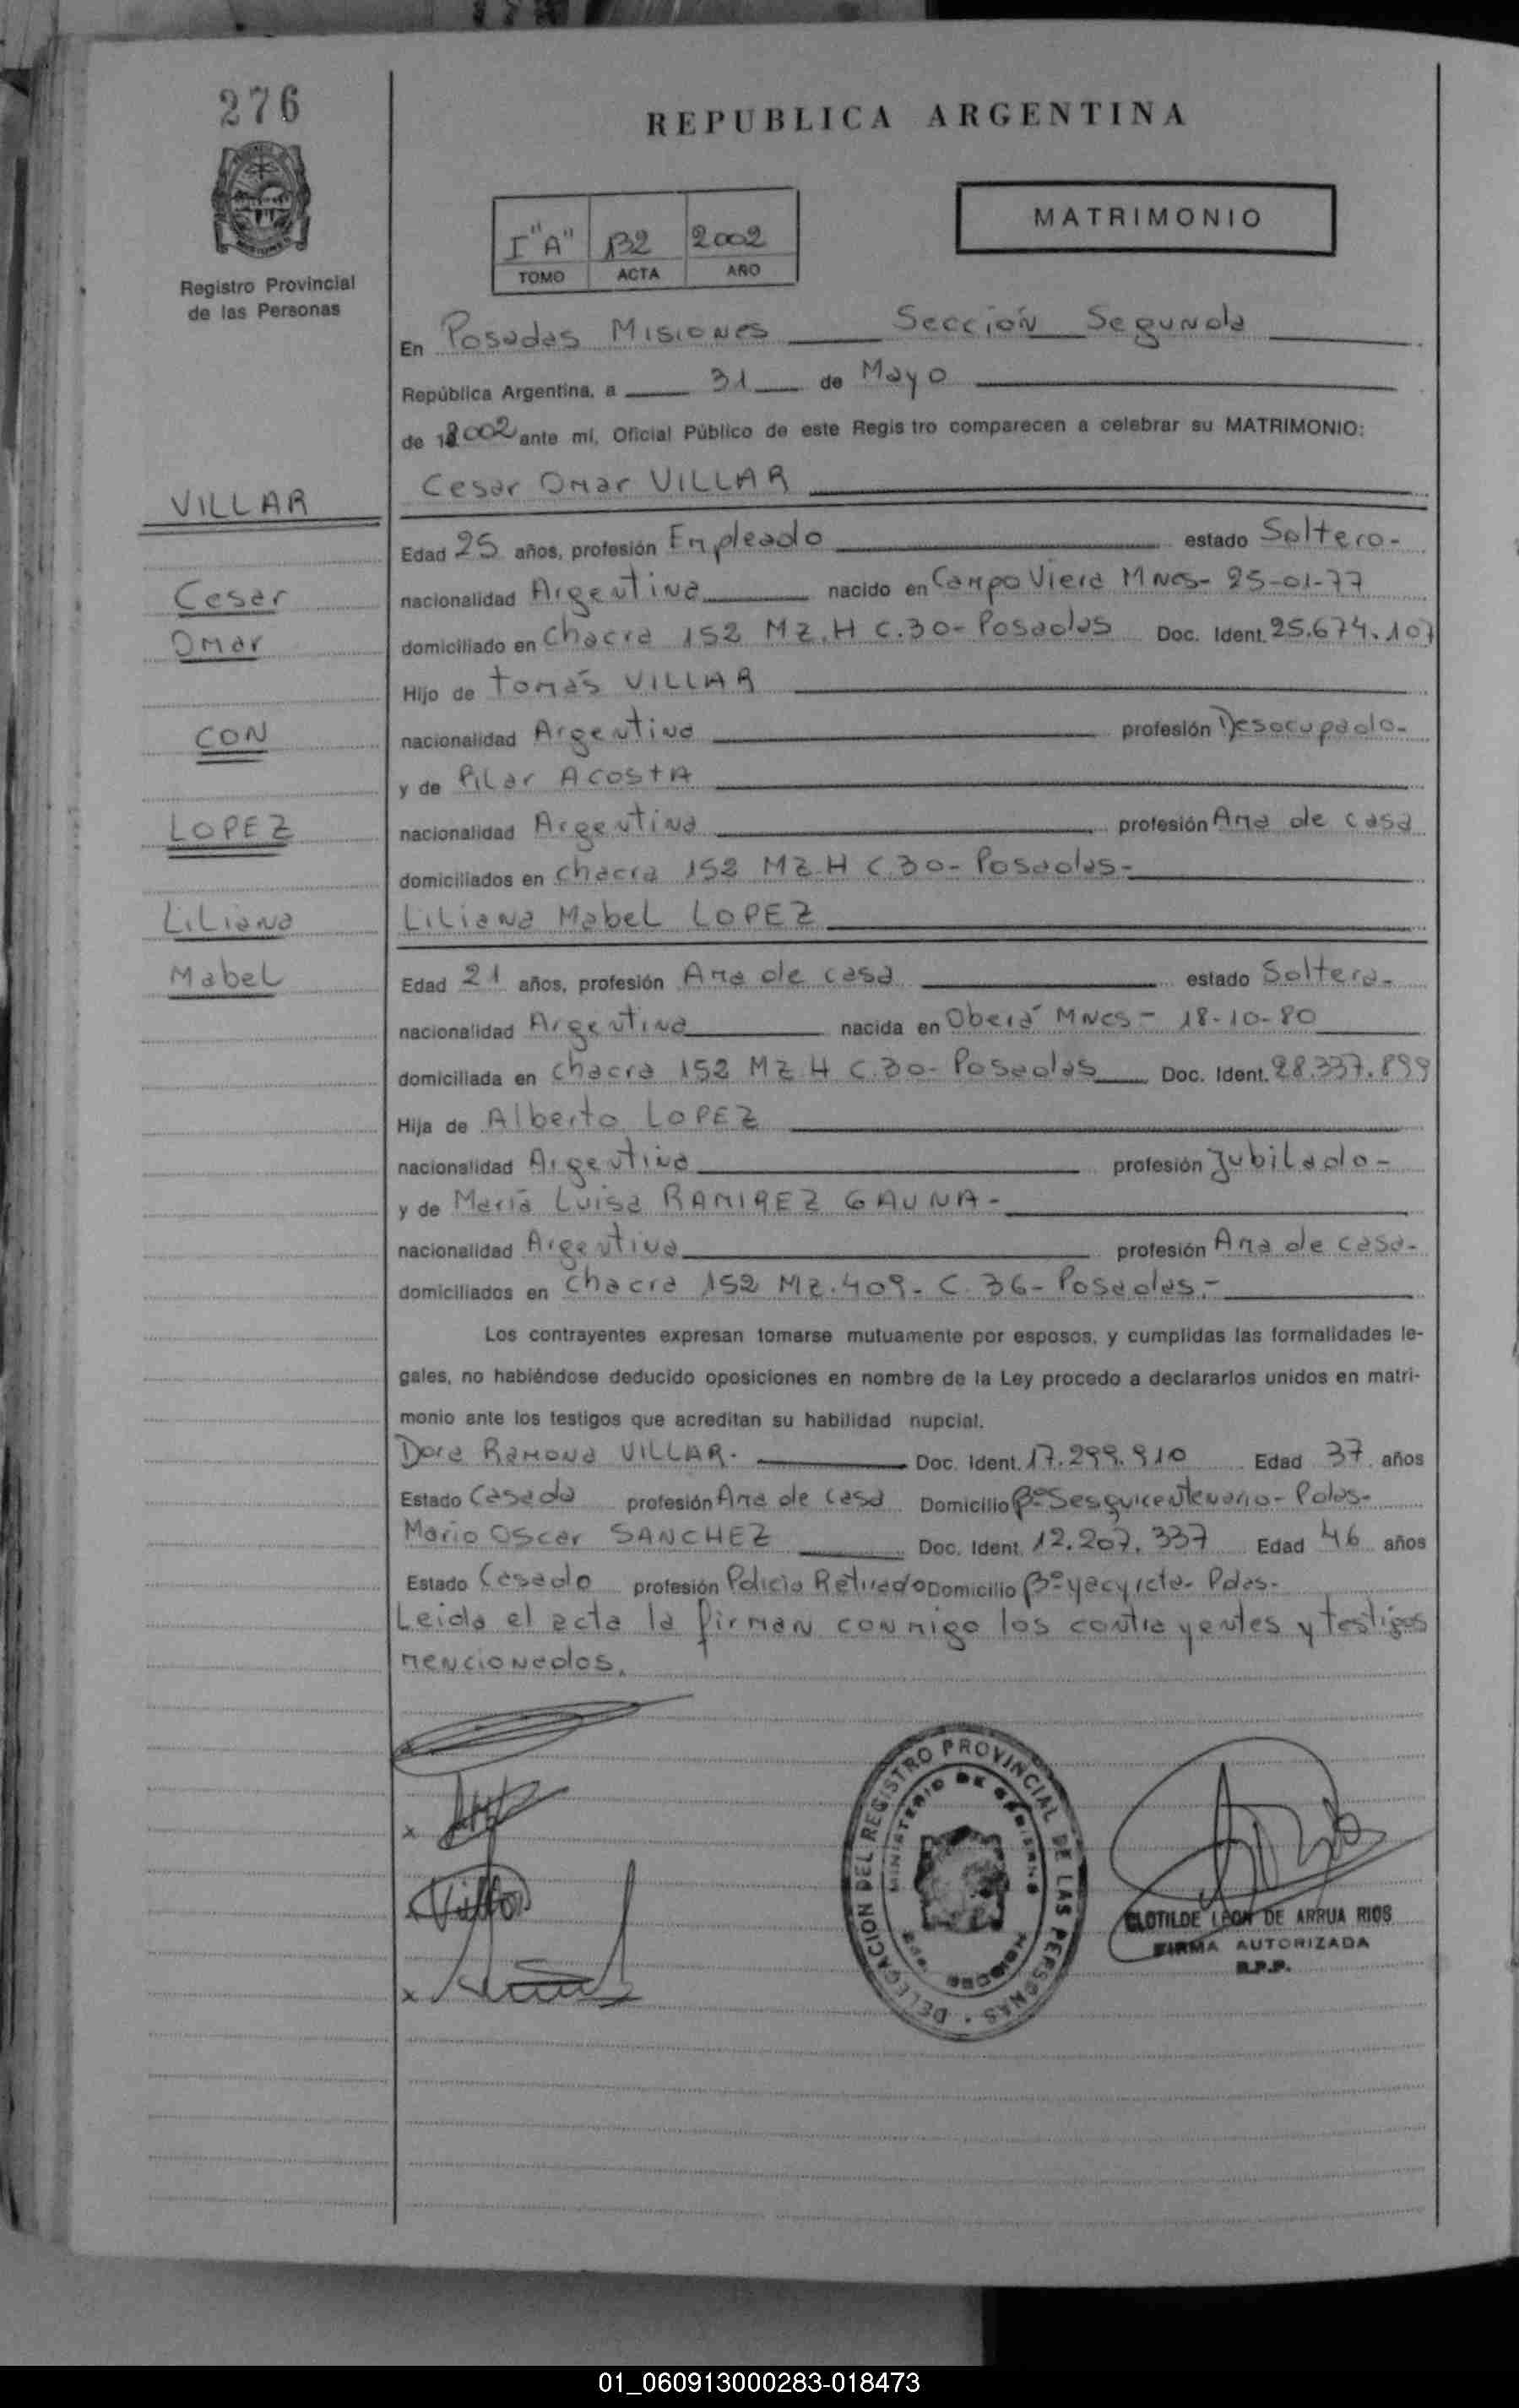 276
REPUBLICA ARGENTINA
MATRIMONIO
I "A" 132 2002
TOMO ACTA AÑO
Registro Provincial
de las Personas
En Posadas Misiones Sección Segunda
República Argentina, a 31 de Mayo
de 2002 ante mí, Oficial Público de este Regis tro comparecen a celebrar su MATRIMONIO:
VILLAR
Cesar Omar VILLAR
Edad 25 años, profesión Empleado estado Soltero-
Cesar
nacionalidad Argentina nacido en Campo Viera Mnes- 25-01-77
Omar
domiciliado en Chacra 152 Mz. H C.30- Posadas Doc. Ident. 25.674.107
Hijo de Tomás VILLAR
CON
nacionalidad Argentina profesión Desocupado-
y de Pilar ACOSTA
LOPEZ
nacionalidad Argentina profesión Ama de casa
domiciliados en Chacra 152 Mz H C.30- Posadas-
Liliana
Liliana Mabel LOPEZ
Mabel
Edad 21 años, profesión Ama de casa estado Soltera-
nacionalidad Argentina nacida en Oberá Mnes- 18-10-80
domiciliada en Chacra 152 Mz H C.30- Posadas Doc. Ident. 28.337.899
Hija de Alberto LOPEZ
nacionalidad Argentina profesión Jubilado-
y de María Luisa RAMIREZ GAUNA-
nacionalidad Argentina profesión Ama de casa-
domiciliados en Chacra 152 Mz. 409- C. 36- Posadas.-
Los contrayentes expresan tomarse mutuamente por esposos, y cumplidas las formalidades le-
gales, no habiéndose deducido oposiciones en nombre de la Ley procedo a declararlos unidos en matri-
monio ante los testigos que acreditan su habilidad nupcial.
Dora Ramona VILLAR. Doc. Ident. 17.299.910 Edad 37 años
Estado Casada profesión Ama de casa Domicilio Bº Sesquicentenario- Pdas-
Mario Oscar SANCHEZ Doc. Ident. 12.207.337 Edad 46 años
Estado Casado profesión Policia Retirado Domicilio Bº yacyreta- Pdas-
Leida el acta la firman conmigo los contrayentes y testigos
mencionados.
DELEGACION DEL REGISTRO PROVINCIAL DE LAS PERSONAS
MINISTERIO DE GOBIERNO
CLOTILDE LEON DE ARRUA RIOS
FIRMA AUTORIZADA
R.P.P.
01_060913000283-018473